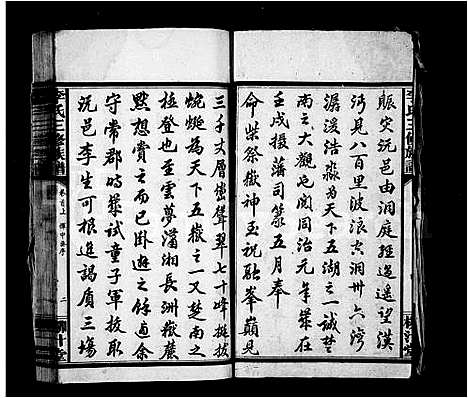 賑災沅邑由洞庭經過遙望漢
沔見八百里波浪去洞卅六灣
潺湲浩蕩為天下五湖之一誠楚
南之大觀也閱同治元年歲在
壬戌攝藩司篆五月奉
命柴祭嶽神玉祝融峯巔見
三千丈層巒聳翠七十峰挺拔
蜿蜒為天下五嶽之一又楚南之
極登也之雲夢瀟湘長洲嶽麓
默想賞之而已卦遊之餘適余
守常郡時歲試童子軍拔取
沅邑李生可根造謁質三場
李氏三修族譜
卷首上
序
二